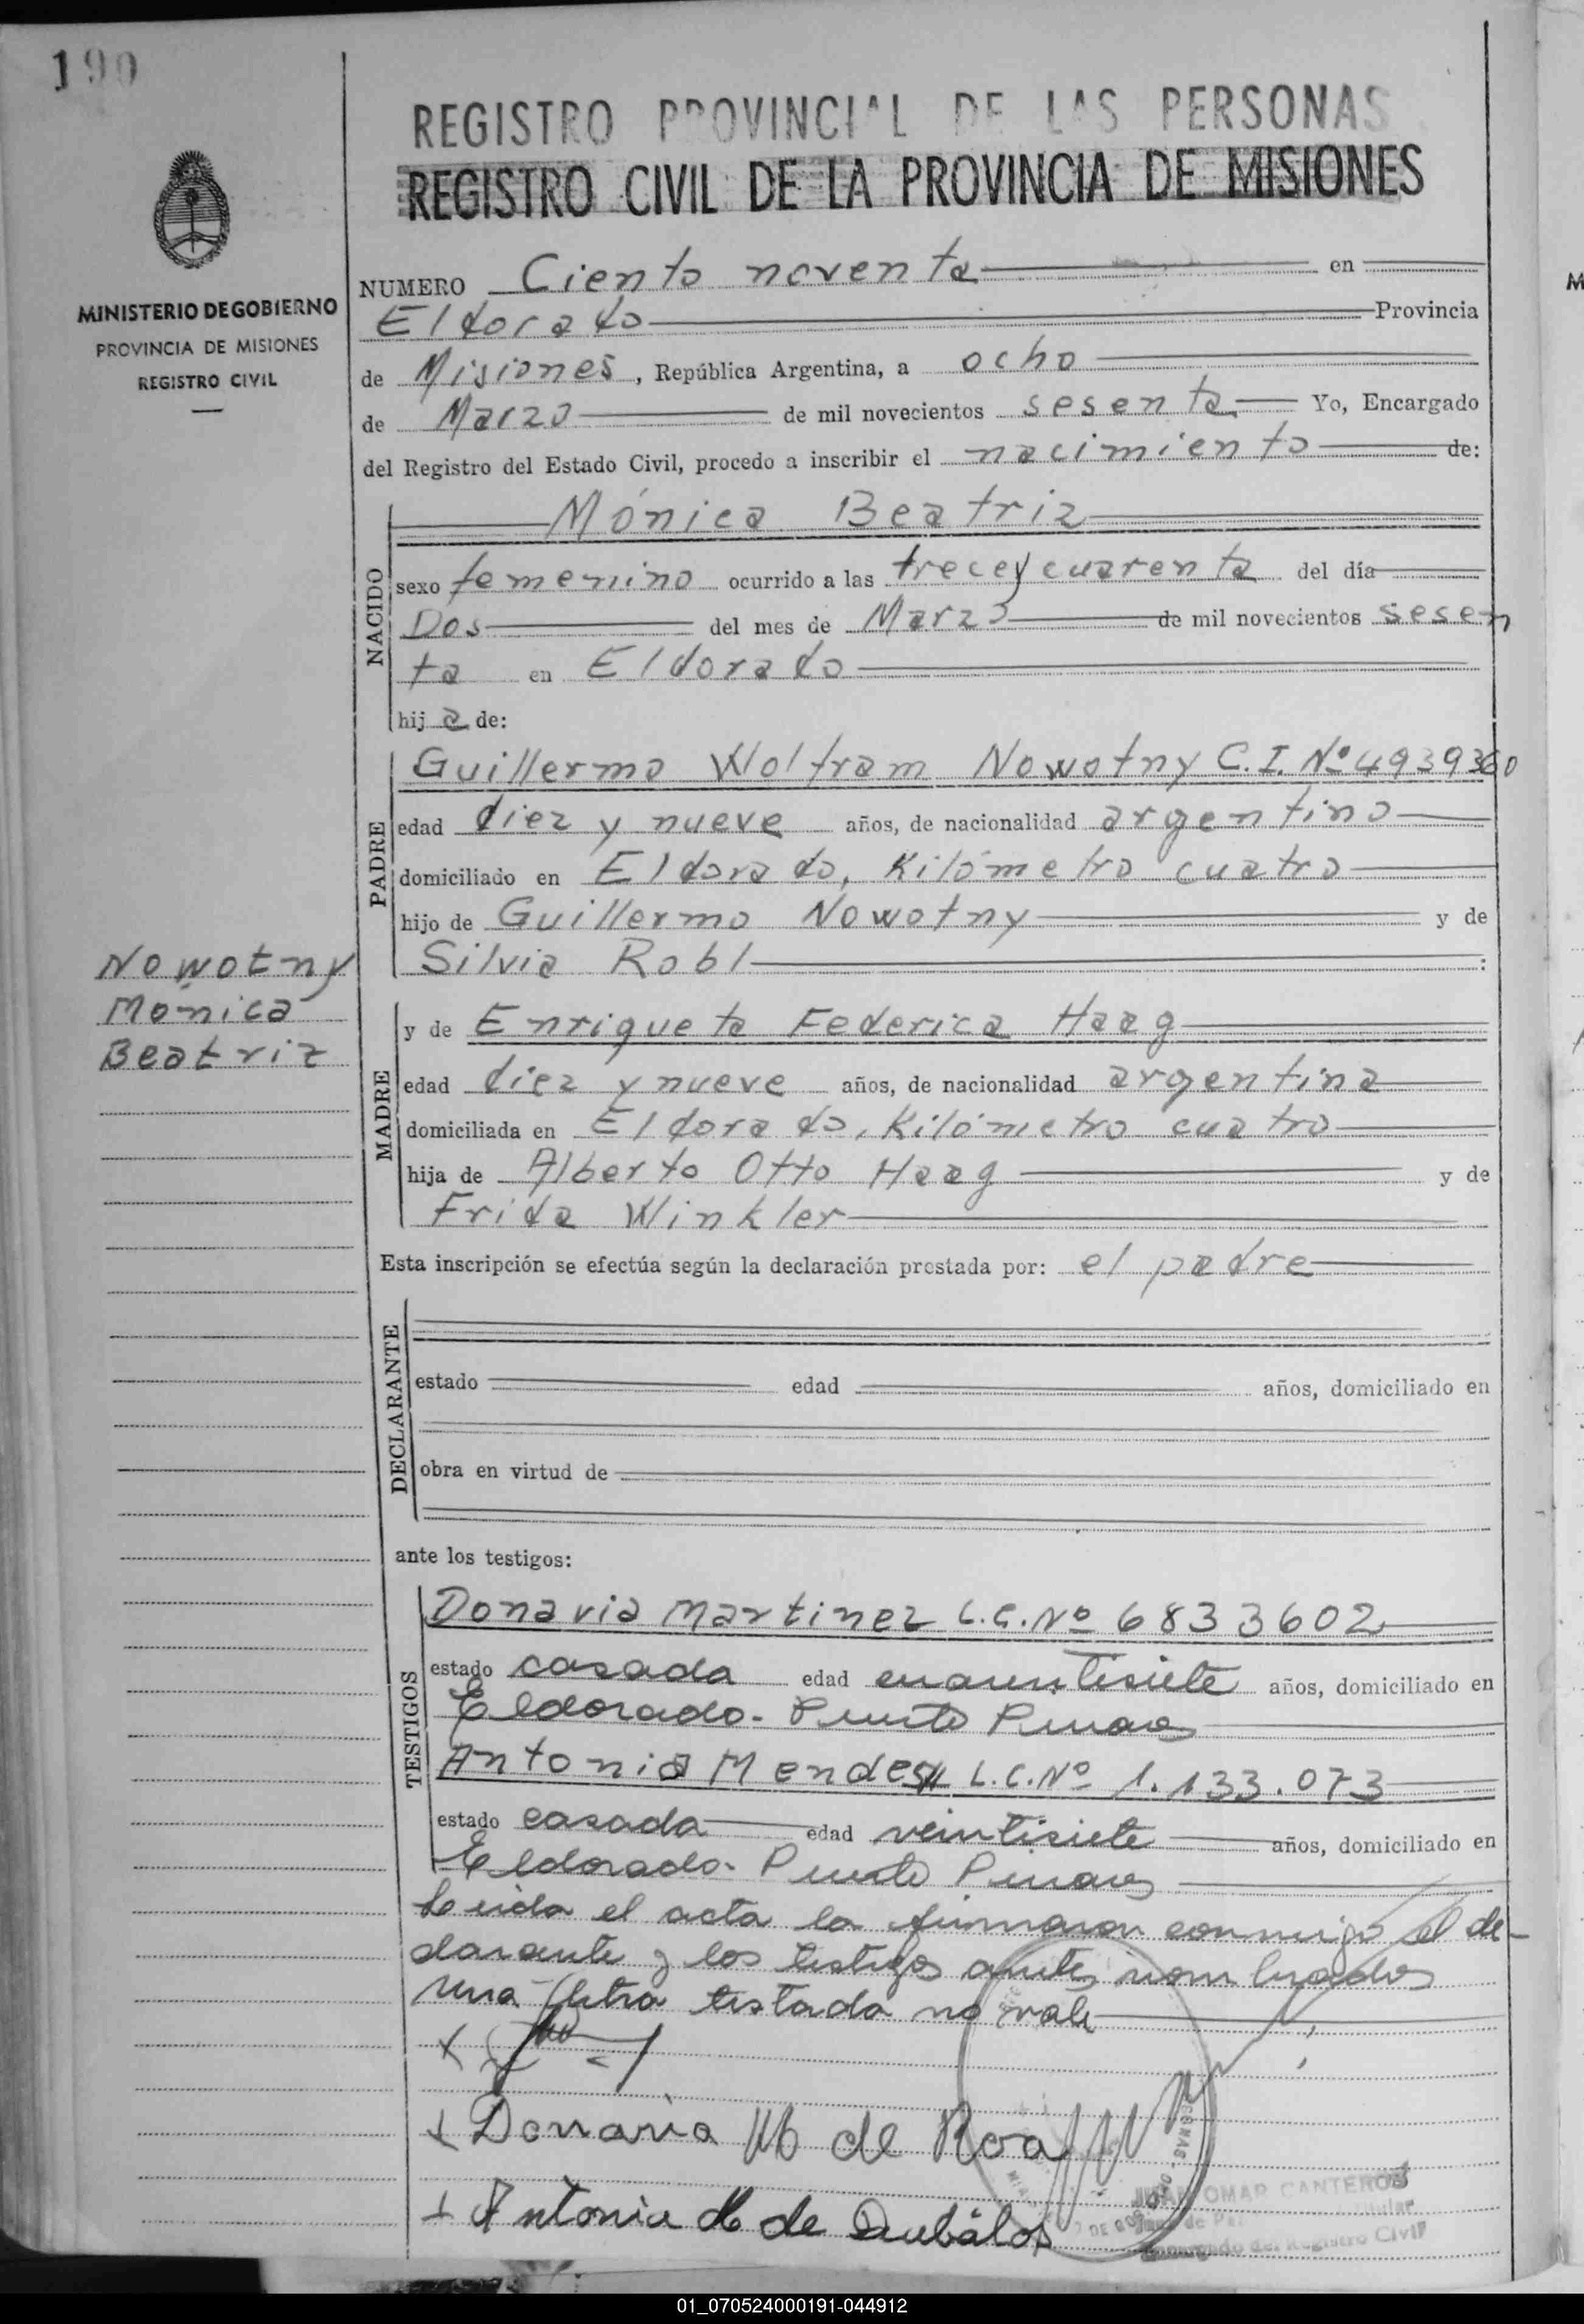 190
REGISTRO PROVINCIAL DE LAS PERSONAS
REGISTRO CIVIL DE LA PROVINCIA DE MISIONES
MINISTERIO DE GOBIERNO
PROVINCIA DE MISIONES
REGISTRO CIVIL
NUMERO Ciento noventa en
Eldorado Provincia
de Misiones, República Argentina, a ocho
de Marzo de mil novecientos sesenta Yo, Encargado
del Registro del Estado Civil, procedo a inscribir el nacimiento de:
NACIDO
Mónica Beatriz
sexo femenino ocurrido a las trece y cuarenta del día
Dos del mes de Marzo de mil novecientos sesen
ta en Eldorado
hija de:
PADRE
Guillermo Wolfram Nowotny C.I. Nº 4939360
edad diez y nueve años, de nacionalidad argentino
domiciliado en Eldorado, Kilómetro cuatro
hijo de Guillermo Nowotny y de
Silvia Robl :
Nowotny
Mónica
Beatriz
MADRE
y de Enriqueta Federica Haag
edad diez y nueve años, de nacionalidad argentina
domiciliada en Eldorado, Kilómetro cuatro
hija de Alberto Otto Haag y de
Frida Winkler
Esta inscripción se efectúa según la declaración prestada por: el padre
DECLARANTE
estado edad años, domiciliado en
obra en virtud de
ante los testigos:
TESTIGOS
Donaria Martinez L.C. Nº 6833602
estado casada edad cuarentisiete años, domiciliado en
Eldorado - Puerto Pinares
Antonia Mendes L.C. Nº 1.133.073
estado casada edad veintisiete años, domiciliado en
Eldorado - Puerto Pinares
Leida el acta la firmaron conmigo el de-
clarante y los testigos antes nombrados
una letra testada no vale
x
x Donaria M de Roa
x Antonia M de Dubálos
JUAN OMAR CANTEROS
Titular
Juez de Paz
Encargado del Registro Civil
01_070524000191-044912